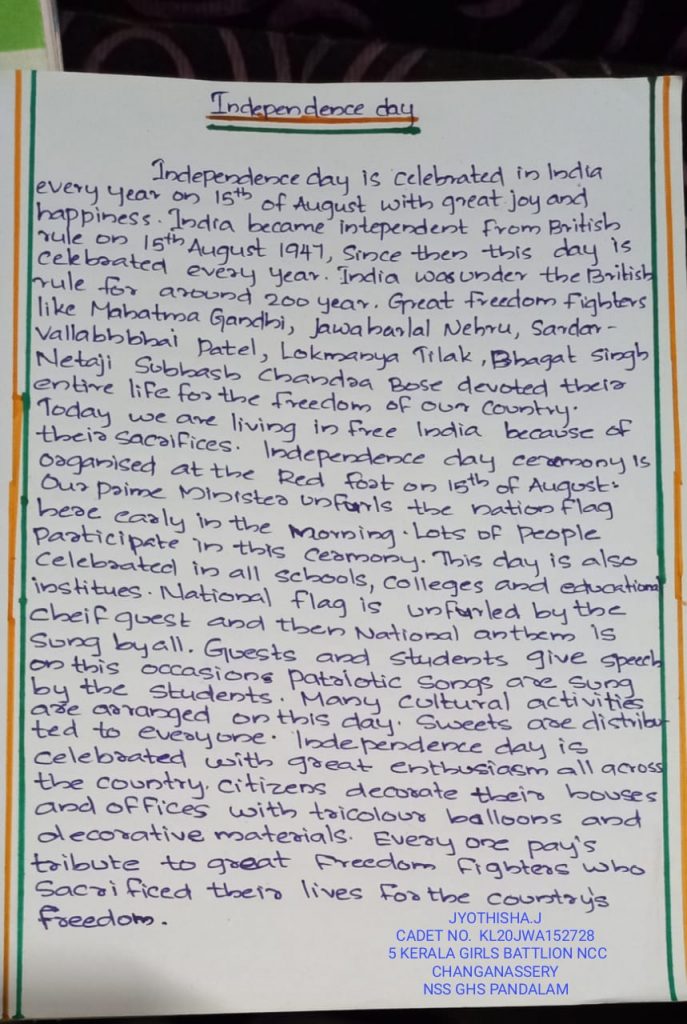 Independence day
Independence day is celebrated in India
every year on 15th of August with great joy and
happiness. India became intependent from British
rule on 15th August 1947, Since then this day is
celebrated every year. India was under the British
rule for around 200 year. Great freedom fighters
like Mahatma Gandhi, Jawaharlal Nehru, Sardar-
Vallabhbhai Patel, Lokmanya Tilak, Bhagat Singh
Netaji Subhash Chandra Bose devoted their
entire life for the freedom of our country.
Today we are living in free India because of
their sacrifices. Independence day ceremony is
organised at the Red fort on 15th of August.
Our prime Minister unfurls the nation flag
here early in the Morning. Lots of People
Participate in this cermony. This day is also
celebrated in all schools, colleges and educational
institues. National flag is unfurled by the
cheif guest and then National anthem is
sung by all. Guests and students give speech
on this occasions patriotic songs are sung
by the students. Many cultural activities
are arranged on this day. Sweets are distribu-
ted to everyone. Independence day is
celebrated with great enthusiasm all across
the country. Citizens decorate their houses
and offices with tricolour balloons and
decorative materials. Every one pay's
tribute to great Freedom fighters who
Sacrificed their lives for the country's
freedom.
JYOTHISHA.J
CADET NO. KL20JWA152728
5 KERALA GIRLS BATTLION NCC
CHANGANASSERY
NSS GHS PANDALAM